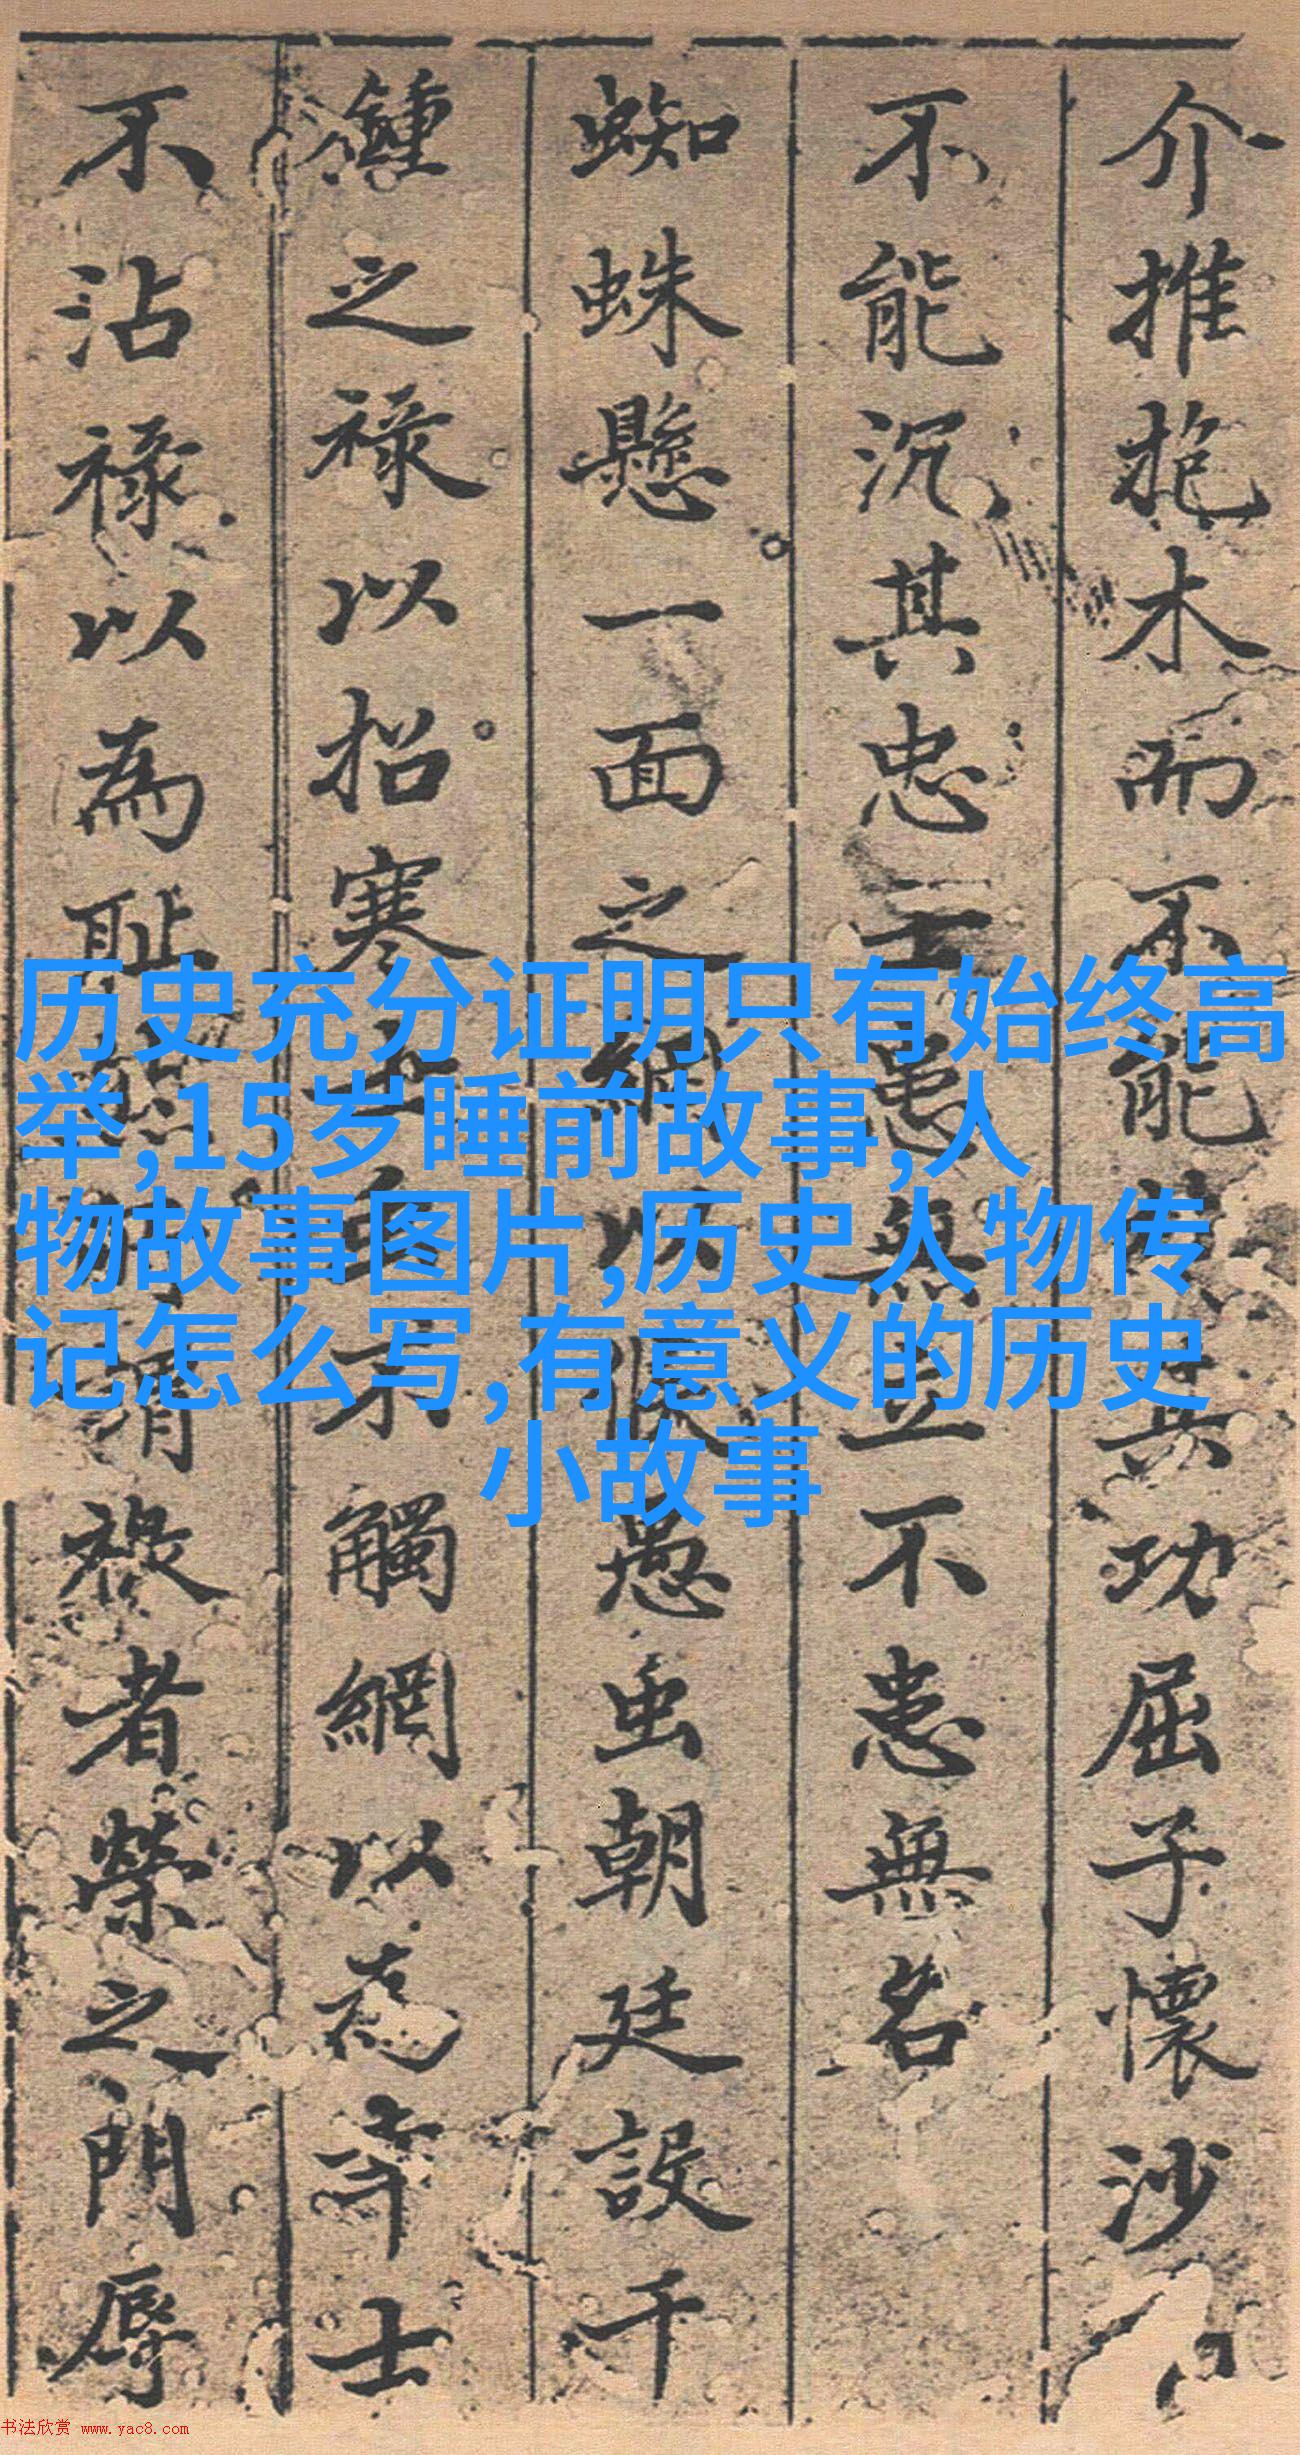 介推抱木而不能其功屈子懷沙
不能沉其忠士患無立不患無名
蜘蛛懸一面之網以愚虫朝廷設千
鍾之祿以招寒士虫不觸網以為士
不沾祿以為恥謂祿者榮之門辱
历史充分证明只有始终高
举,15岁睡前故事,人
物故事图片,历史人物传
记怎么写,有意义的历史
小故事
书法欣赏 www.yac8.com